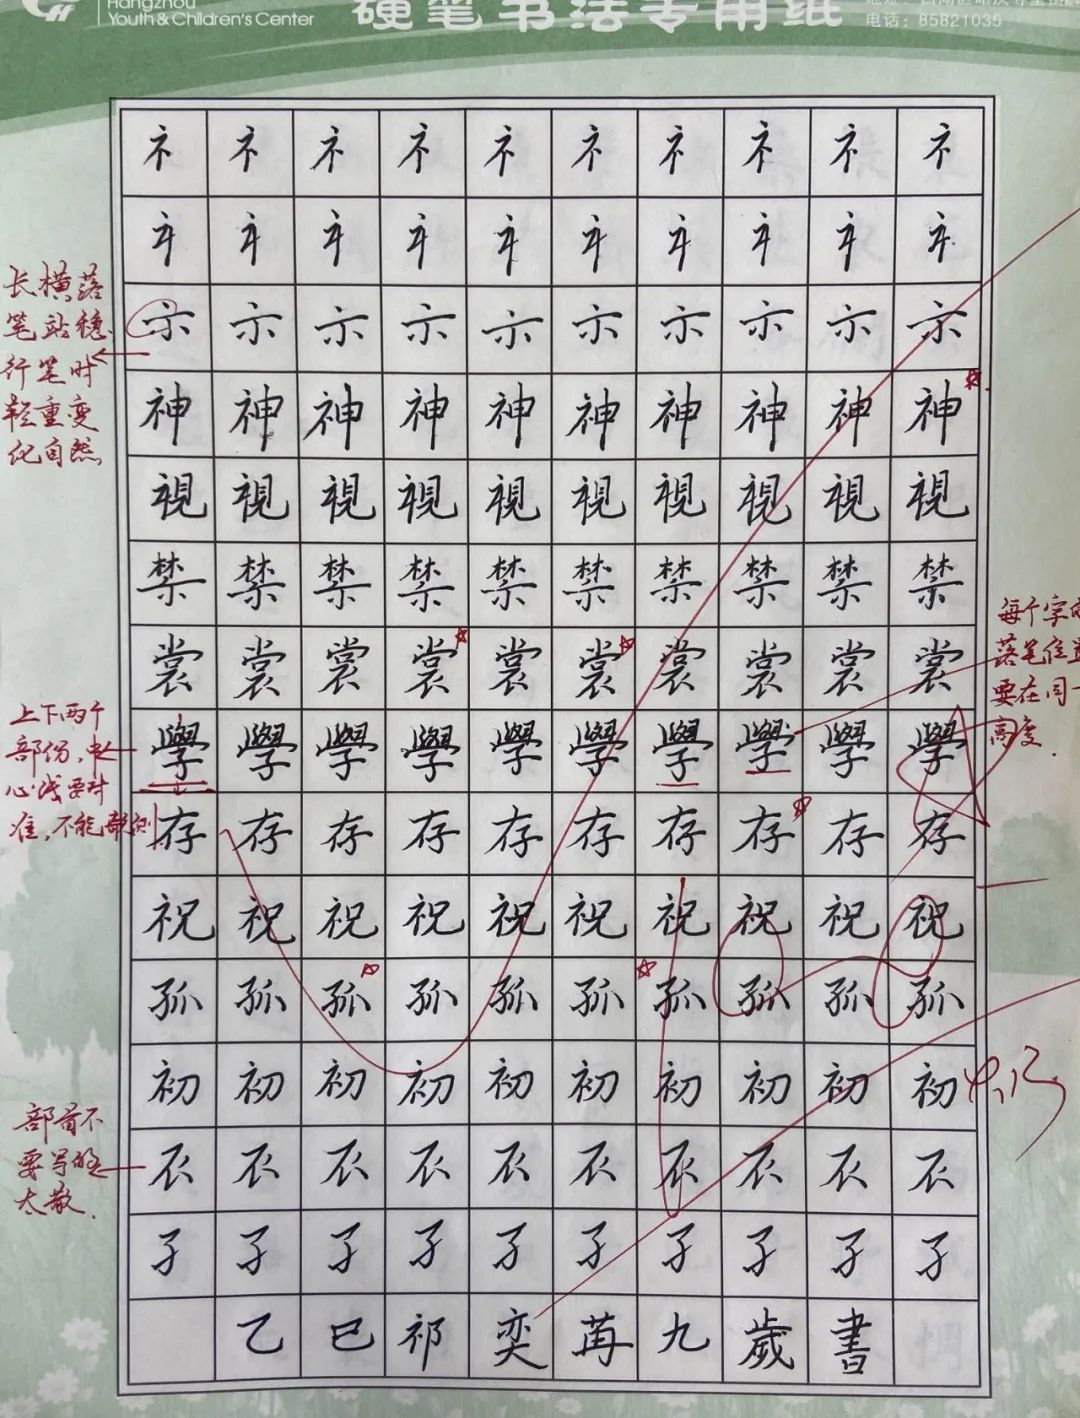 Hangzhou
Youth & Children's Center
硬笔书法专用纸
电话：85821035
礻礻礻礻礻礻礻礻礻礻
礻礻礻礻礻礻礻礻礻礻
示示示示示示示示示示
神神神神神神神神神神
視視視視視視視視視視
禁禁禁禁禁禁禁禁禁禁
裳裳裳裳裳裳裳裳裳裳
學學學學學學學學學學
存存存存存存存存存存
祝祝祝祝祝祝祝祝祝祝
孤孤孤孤孤孤孤孤孤孤
初初初初初初初初初初
衣衣衣衣衣衣衣衣衣衣
子子子子子子子子子子
乙巳祁奕苒九歲書
长横落
笔站稳.
行笔时
轻重变
化自然
上下两个
部份，中
心线要对
准，不能歪斜
部首不
要写的
太散.
每个字的
落笔位置
要在同一
高度.